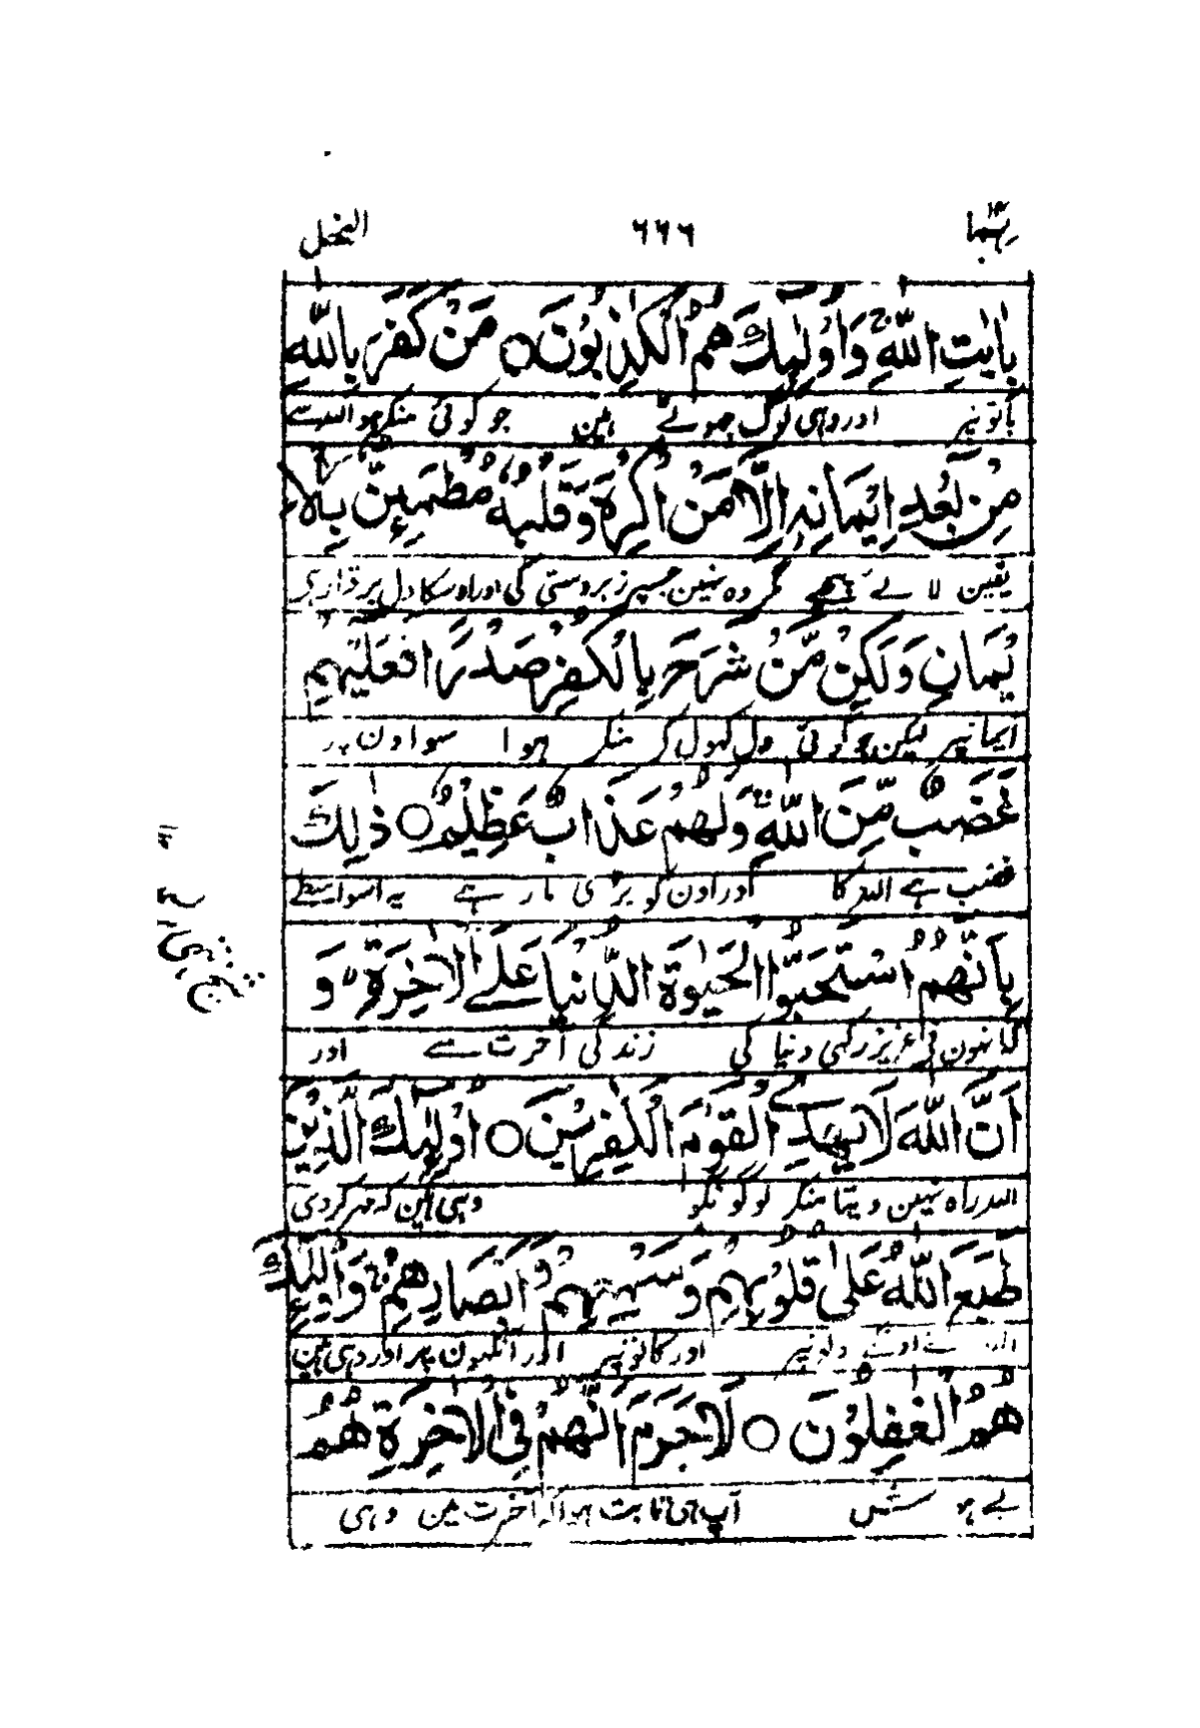 ربما ٦٦٦ النحل
بِاٰيٰتِ اللّٰهِ وَاُولٰٓئِكَ هُمُ الْكٰذِبُوْنَ ○ مَنْ كَفَرَ بِاللّٰهِ
باتونپر اور وہی لوگ جھوٹے ہین جو کوئی منکر ہو اللہ سے
مِنْۢ بَعْدِ اِيْمَانِهٖٓ اِلَّا مَنْ اُكْرِهَ وَقَلْبُهٗ مُطْمَئِنٌّۢ بِالْاِ
یقین لائے پیچھے مگر وہ نہین جسپر زبردستی کی اور اوسکا دل برقرار ہی
يْمَانِ وَلٰكِنْ مَّنْ شَرَحَ بِالْكُفْرِ صَدْرًا فَعَلَيْهِمْ
ایمانپر لیکن جو کوئی دل کھول کر منکر ہوا سو اون پر
غَضَبٌ مِّنَ اللّٰهِ ۚ وَلَهُمْ عَذَابٌ عَظِيْمٌ ○ ذٰلِكَ
غضب ہے اللہ کا اور اون کو بڑی مار ہے یہ اسواسطے
بِاَنَّهُمُ اسْتَحَبُّوا الْحَيٰوةَ الدُّنْيَا عَلَى الْاٰخِرَةِ ۙ وَ
کہ انہون نے عزیز رکھی دنیا کی زندگی آخرت سے اور
اَنَّ اللّٰهَ لَا يَهْدِى الْقَوْمَ الْكٰفِرِيْنَ ○ اُولٰٓئِكَ الَّذِيْنَ
اللہ راہ نہین دیتا منکر لوگونکو وہی ہین کہ مہر کردی
طَبَعَ اللّٰهُ عَلٰى قُلُوْبِهِمْ وَسَمْعِهِمْ وَاَبْصَارِهِمْ ۚ وَاُولٰٓئِكَ
اللہ نے اونکے دلونپر اور کانونپر اور آنکھون پر اور وہی ہین
هُمُ الْغٰفِلُوْنَ ○ لَا جَرَمَ اَنَّهُمْ فِى الْاٰخِرَةِ هُمُ
بے ہوش آپ ہی ثابت ہوا کہ آخرت مین وہی